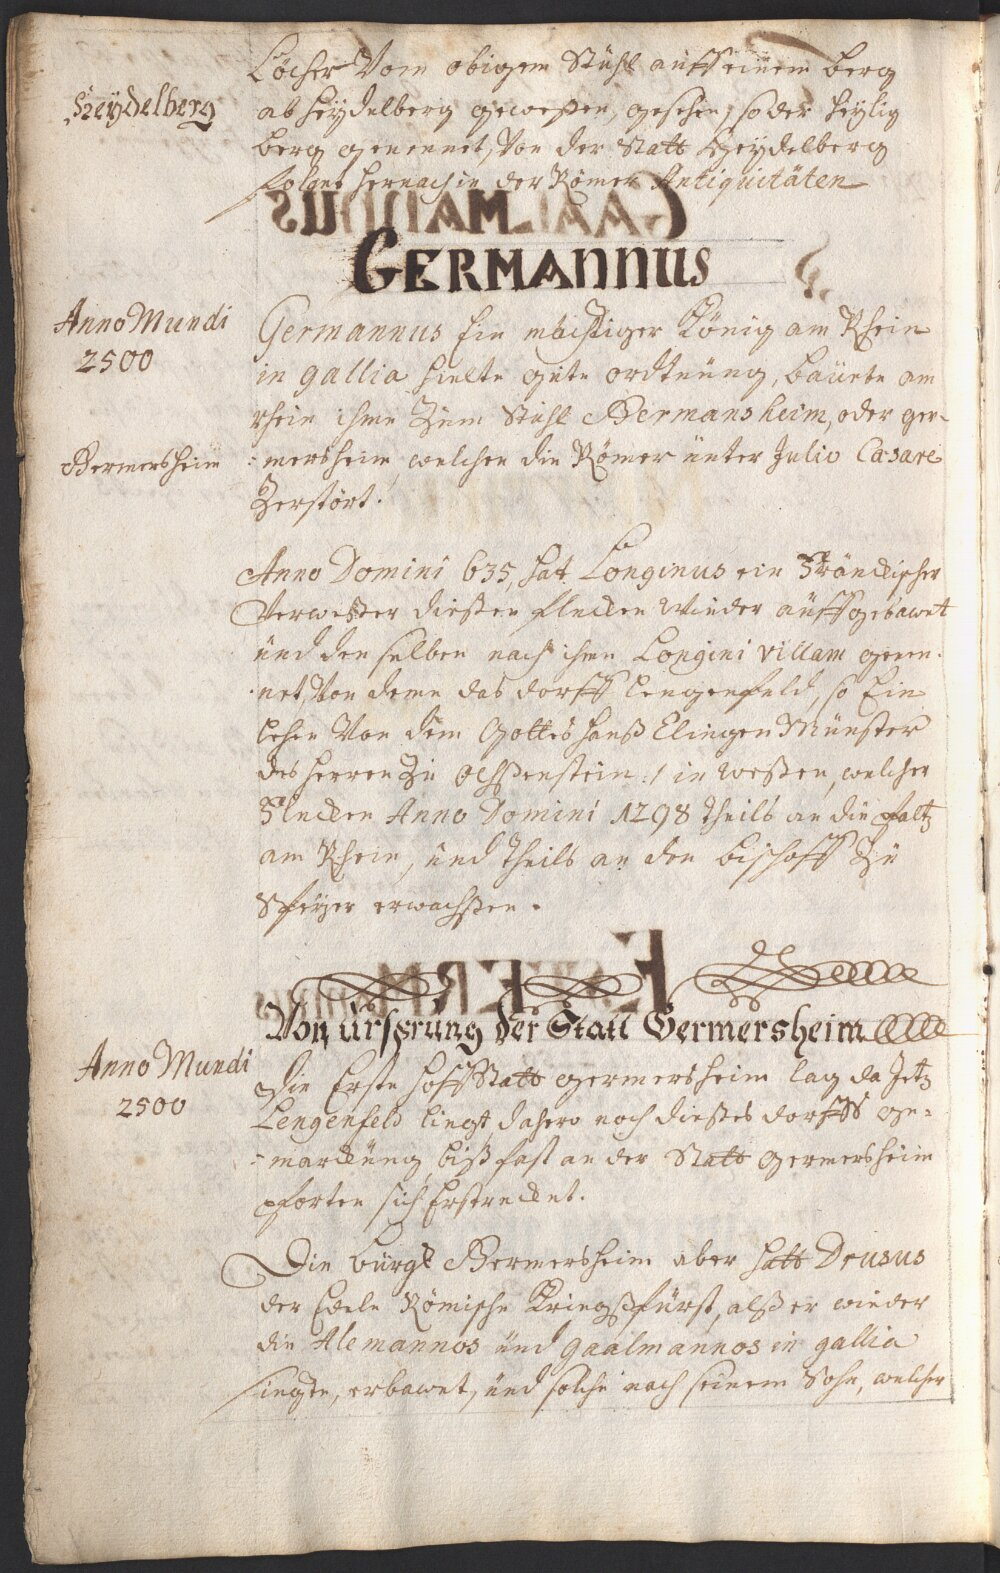 Löcher Vom obigem Stuhl auff einem berg
Heydelberg
ab heydelberg geweßen, geschen, so der heylig
berg genennet, Von der Statt Heydelberg
folget hernach in der Römer Antiquitäten
GERMANNUS
Anno Mundi
2500
Germannus Ein mächtiger König am Rhein
in gallia hielte gute ordtnung, bauete am
rhein ihme Zum Stuhl Germansheim, oder ger-
Germersheim
=mersheim, welchen die Römer unter Julio Casare
Zerstört.
Anno Domini 635, hat Longinus ein Fränckischer
Verweßer dießen flecken Wieder auffgebawet
und denselben nach ihm Longini villam genen-
=net, Von deme das dorff Lengenfeld, so Ein
lehen Von dem Gotteshauß Elingen Münster
des herren Zu Ochßenstein :/ in weßen, welcher
Flecken Anno Domini 1298 theils an die pfaltz
am Rhein, und theils an den bischoff Zu
Speyer erwachßen.
Von Ursprung der Statt Germersheim
Anno Mundi
2500
Die Erste hoffStatt germersheim lag da Jetz
Lengenfeld liegt dahero noch dießes dorffs ge=
=marckung biß fast an der Statt germersheim
pforten sich Erstrecket.
Die burgk Germersheim aber hatt Drusus
der Edele Römische Kriegßfürst, alß er wieder
die Alemannos und gaalmannos in gallia
siegte, erbawet, und solche nach seinem Sohn, welcher